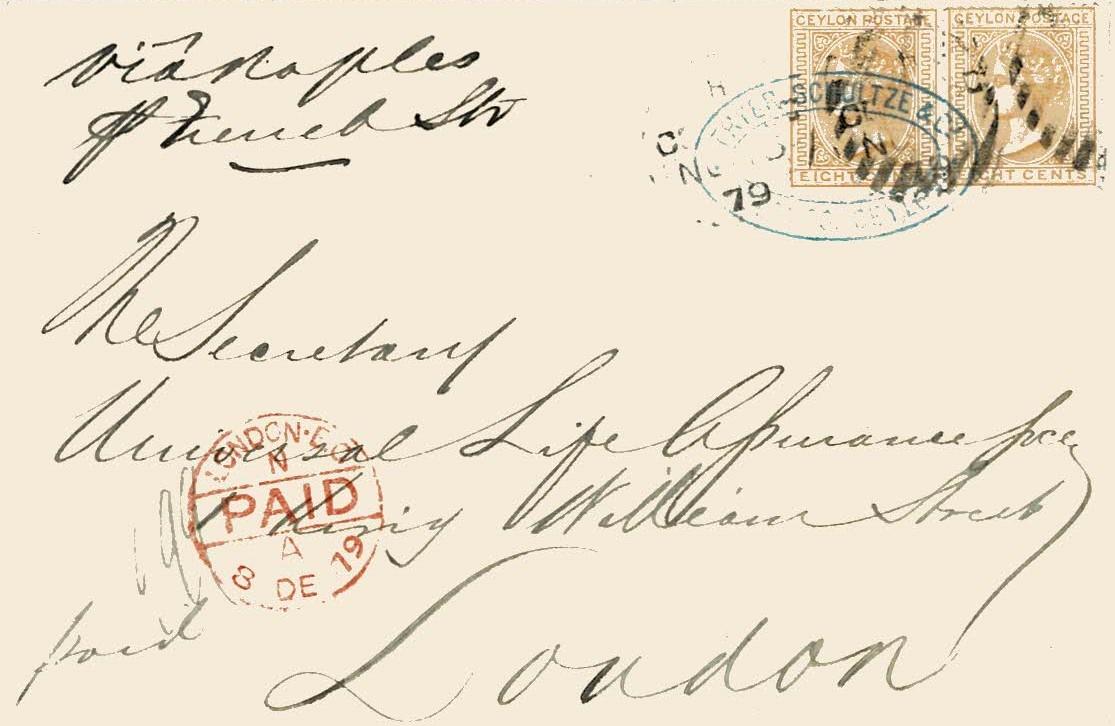 viâ Naples
French Str
CEYLON POSTAGE
EIGHT CENTS
CEYLON POSTAGE
EIGHT CENTS
SCHULTZE & Co
79
The Secretary
Universal Life Assurance Socy
1 King William Street
London
LONDON·E.C
N
PAID
A
8 DE 79
paid